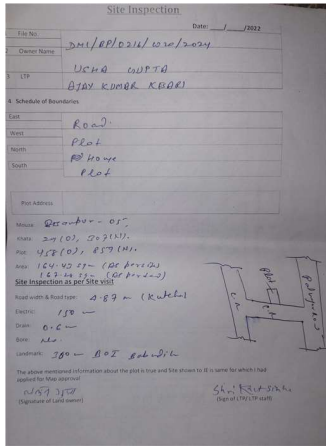 Site Inspection
Date: ___/___/2022
File No DMI/BP/0216/W20/2024
2 Owner Name USHA GUPTA
3 LTP AJAY KUMAR KESARI
4. Schedule of Boundaries
East Road.
West Plot
North Home
South Plot
Plot Address
Mouza: - 05,
Khata: 39 (O), 507 (N).
Plot: 458 (O), 857 (N).
Area: 164.43 sqm (As per site)
167.23 sqm (As per deed)
Site Inspection as per Site visit
Road width & Road type: 4.87 m (Kutcha)
Electric: 150 m
Drain: 0.6 m
Bore: No.
Landmark: 300 m BOI
The above mentioned information about the plot is true and Site shown to JE is same for which I had
applied for Map approval
(Signature of Land owner)
(Sign of LTP/ LTP staff)